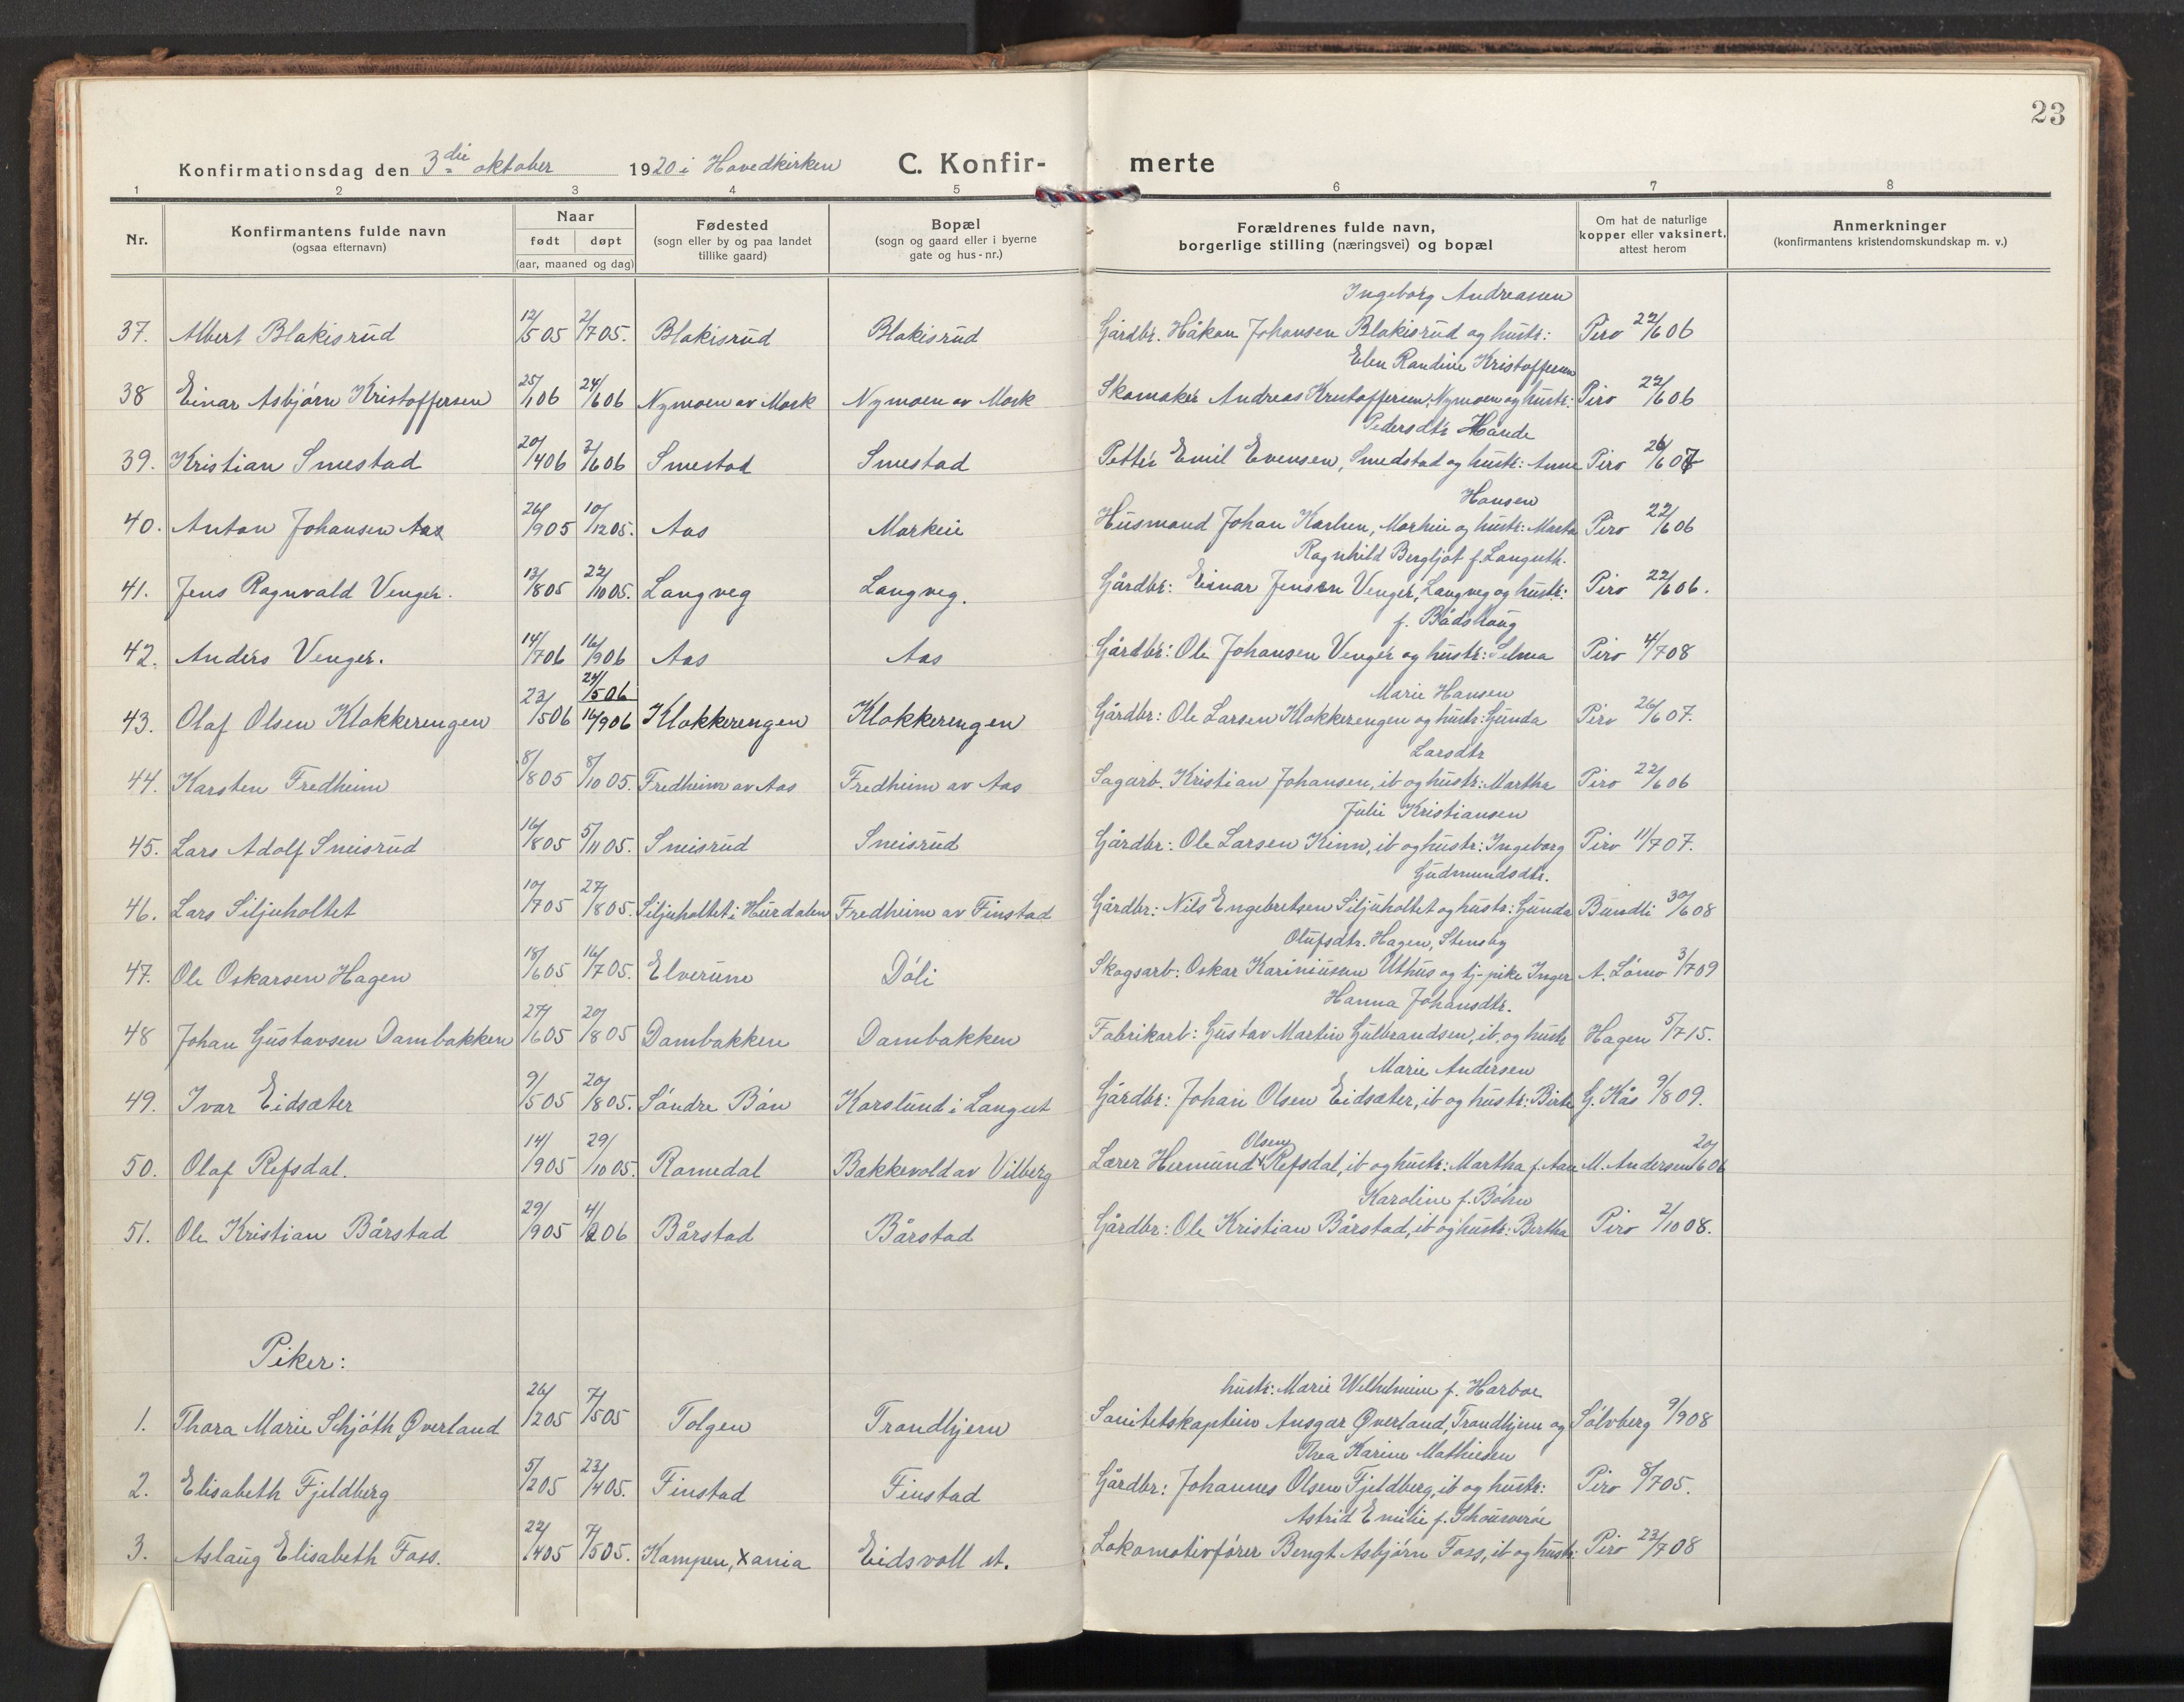 23
Konfirmationsdag den 3die oktober 1920 i Hovedkirken C. Konfir- merte
1 2 3 4 5 6 7 8
Nr. Konfirmantens fulde navn (ogsaa efternavn) Naar født døpt (aar, maaned og dag) Fødested (sogn eller by og paa landet tillike gaard) Bopæl (sogn og gaard eller i byerne gate og hus-nr.) Forældrenes fulde navn, borgerlige stilling (næringsvei) og bopæl Om hat de naturlige kopper eller vaksinert, attest herom Anmerkninger (konfirmantens kristendomskundskap m. v.)
Ingeborg Andreassen
37. Albert Blakisrud 12/5 05 2/7 05. Blakisrud Blakisrud Gårdbr. Håkon Johansen Blakisrud og hustr: Piro 22/6 06
Elen Randine Kristoffersen
38 Einar Asbjørn Kristoffersen 25/1 06 24/6 06 Nymoen av Mork Nymoen av Mork Skomaker Andreas Kristoffersen, Nymoen og hustr: Piro 22/6 06
Pedersdtr Hånde
39. Kristian Smestad 20/4 06 3/6 06 Smestad Smestad Petter Emil Evensen, Smedstad og hustr: Anne Piro 26/6 07
Hansen
40. Anton Johansen Aas 26/9 05 10/12 05. Aas Morkeie Husmand Johan Karlsen, Morkeie og hustr: Marta Piro 22/6 06
Ragnhild Bergljot f. Languth.
41. Jens Ragnvald Venger. 13/8 05 22/10 05. Langveg Langveg. Gårdbr: Einar Jensen Venger, Langveg og hustr: Piro 22/6 06.
f. Bådshaug
42. Anders Venger. 14/7 06 16/9 06 Aas Aas Gårdbr: Ole Johansen Venger og hustr: Selma Piro 4/7 08
24/5 06 Marie Hansen
43. Olaf Olsen Klokkerengen 23/5 06 16/9 06 Klokkerengen Klokkerengen Gårdbr: Ole Larsen Klokkerengen og hustr: Gunda Piro 26/6 07.
Larsdtr
44. Karsten Fredheim 8/8 05 8/10 05. Fredheim av Aas Fredheim av Aas Sagarb. Kristian Johansen, ib og hustr: Martha Piro 22/6 06
Julie Kristiansen
45. Lars Adolf Sneisrud 16/8 05 5/11 05. Sneisrud Sneisrud Gårdbr: Ole Larsen Kinn, ib og hustr: Ingeborg Piro 11/7 07.
Gudmundsdtr.
46. Lars Siljuholtet 10/7 05 27/8 05. Siljuholtet i Hurdalen Fredheim av Finstad Gårdbr: Nils Engebretsen Siljuholtet og hustr: Gunda Bundli 30/6 08
Olufsdtr. Hagen, Stensby
47. Ole Oskarsen Hagen 18/6 05 16/7 05. Elverum Døli Skogsarb: Oskar Kariniusen Uthus og tj-pike Inger A. Lømo 3/7 09
Hanna Johansdtr.
48 Johan Gustavsen Dambakken 27/6 05 20/8 05 Dambakken Dambakken Fabrikarb: Gustav Martin Gulbrandsen, ib, og hustr Hagen 5/7 15.
Marie Andersen
49. Ivar Eidsæter 9/5 05 20/8 05. Søndre Bøn Karslund i Langset Gårdbr: Johan Olsen Eidsæter, ib og hustr: Birte G. Kås 9/8 09.
Olsen
50. Olaf Refsdal. 14/9 05 29/10 05. Romedal Bakkevold av Vilberg Lærer Hermund Refsdal, ib og hustr: Martha f. Aas M. Andersen 20/6 06
Karoline f. Bøhn
51. Ole Kristian Bårstad 29/9 05 4/2 06 Bårstad Bårstad Gårdbr: Ole Kristian Bårstad, ib og hustr: Bertha Piro 2/10 08.
Piker:
hustr: Marie Wilhelmine f. Harboe
1. Thora Marie Schjøth Øverland 26/2 05 7/5 05 Tolgen Trondhjem Sanitetskaptein Ansgar Øverland, Trondhjem og Sølvberg 9/9 08
Thea Karine Mathiesen
2. Elisabeth Fjeldberg 5/2 05 23/4 05. Finstad Finstad Gårdbr: Johannes Olsen Fjeldberg, ib og hustr: Piro 8/7 05.
Astrid Emilie f. Schouwerøe
3. Aslaug Elisabeth Foss. 22/4 05 7/5 05. Kampen, Xania Eidsvoll st. Lokomotivfører Bengt Asbjørn Foss, ib og hustr: Piro 23/7 08